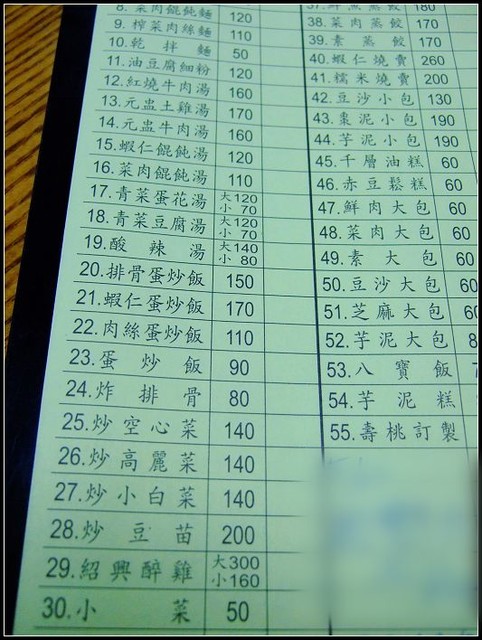 8.菜肉餛飩麵 120
9.榨菜肉絲麵 110
10.乾拌麵 50
11.油豆腐細粉 120
12.紅燒牛肉湯 160
13.元盅土雞湯 170
14.元盅牛肉湯 160
15.蝦仁餛飩湯 120
16.菜肉餛飩湯 110
17.青菜蛋花湯 大120 小 70
18.青菜豆腐湯 大120 小 70
19.酸辣湯 大140 小 80
20.排骨蛋炒飯 150
21.蝦仁蛋炒飯 170
22.肉絲蛋炒飯 110
23.蛋炒飯 90
24.炸排骨 80
25.炒空心菜 140
26.炒高麗菜 140
27.炒小白菜 140
28.炒豆苗 200
29.紹興醉雞 大300 小160
30.小菜 50
37.鮮魚蒸餃 180
38.菜肉蒸餃 170
39.素蒸餃 170
40.蝦仁燒賣 260
41.糯米燒賣 200
42.豆沙小包 130
43.棗泥小包 190
44.芋泥小包 190
45.千層油糕 60
46.赤豆鬆糕 60
47.鮮肉大包 60
48.菜肉大包 60
49.素大包 60
50.豆沙大包 60
51.芝麻大包 60
52.芋泥大包 8
53.八寶飯
54.芋泥糕
55.壽桃訂製